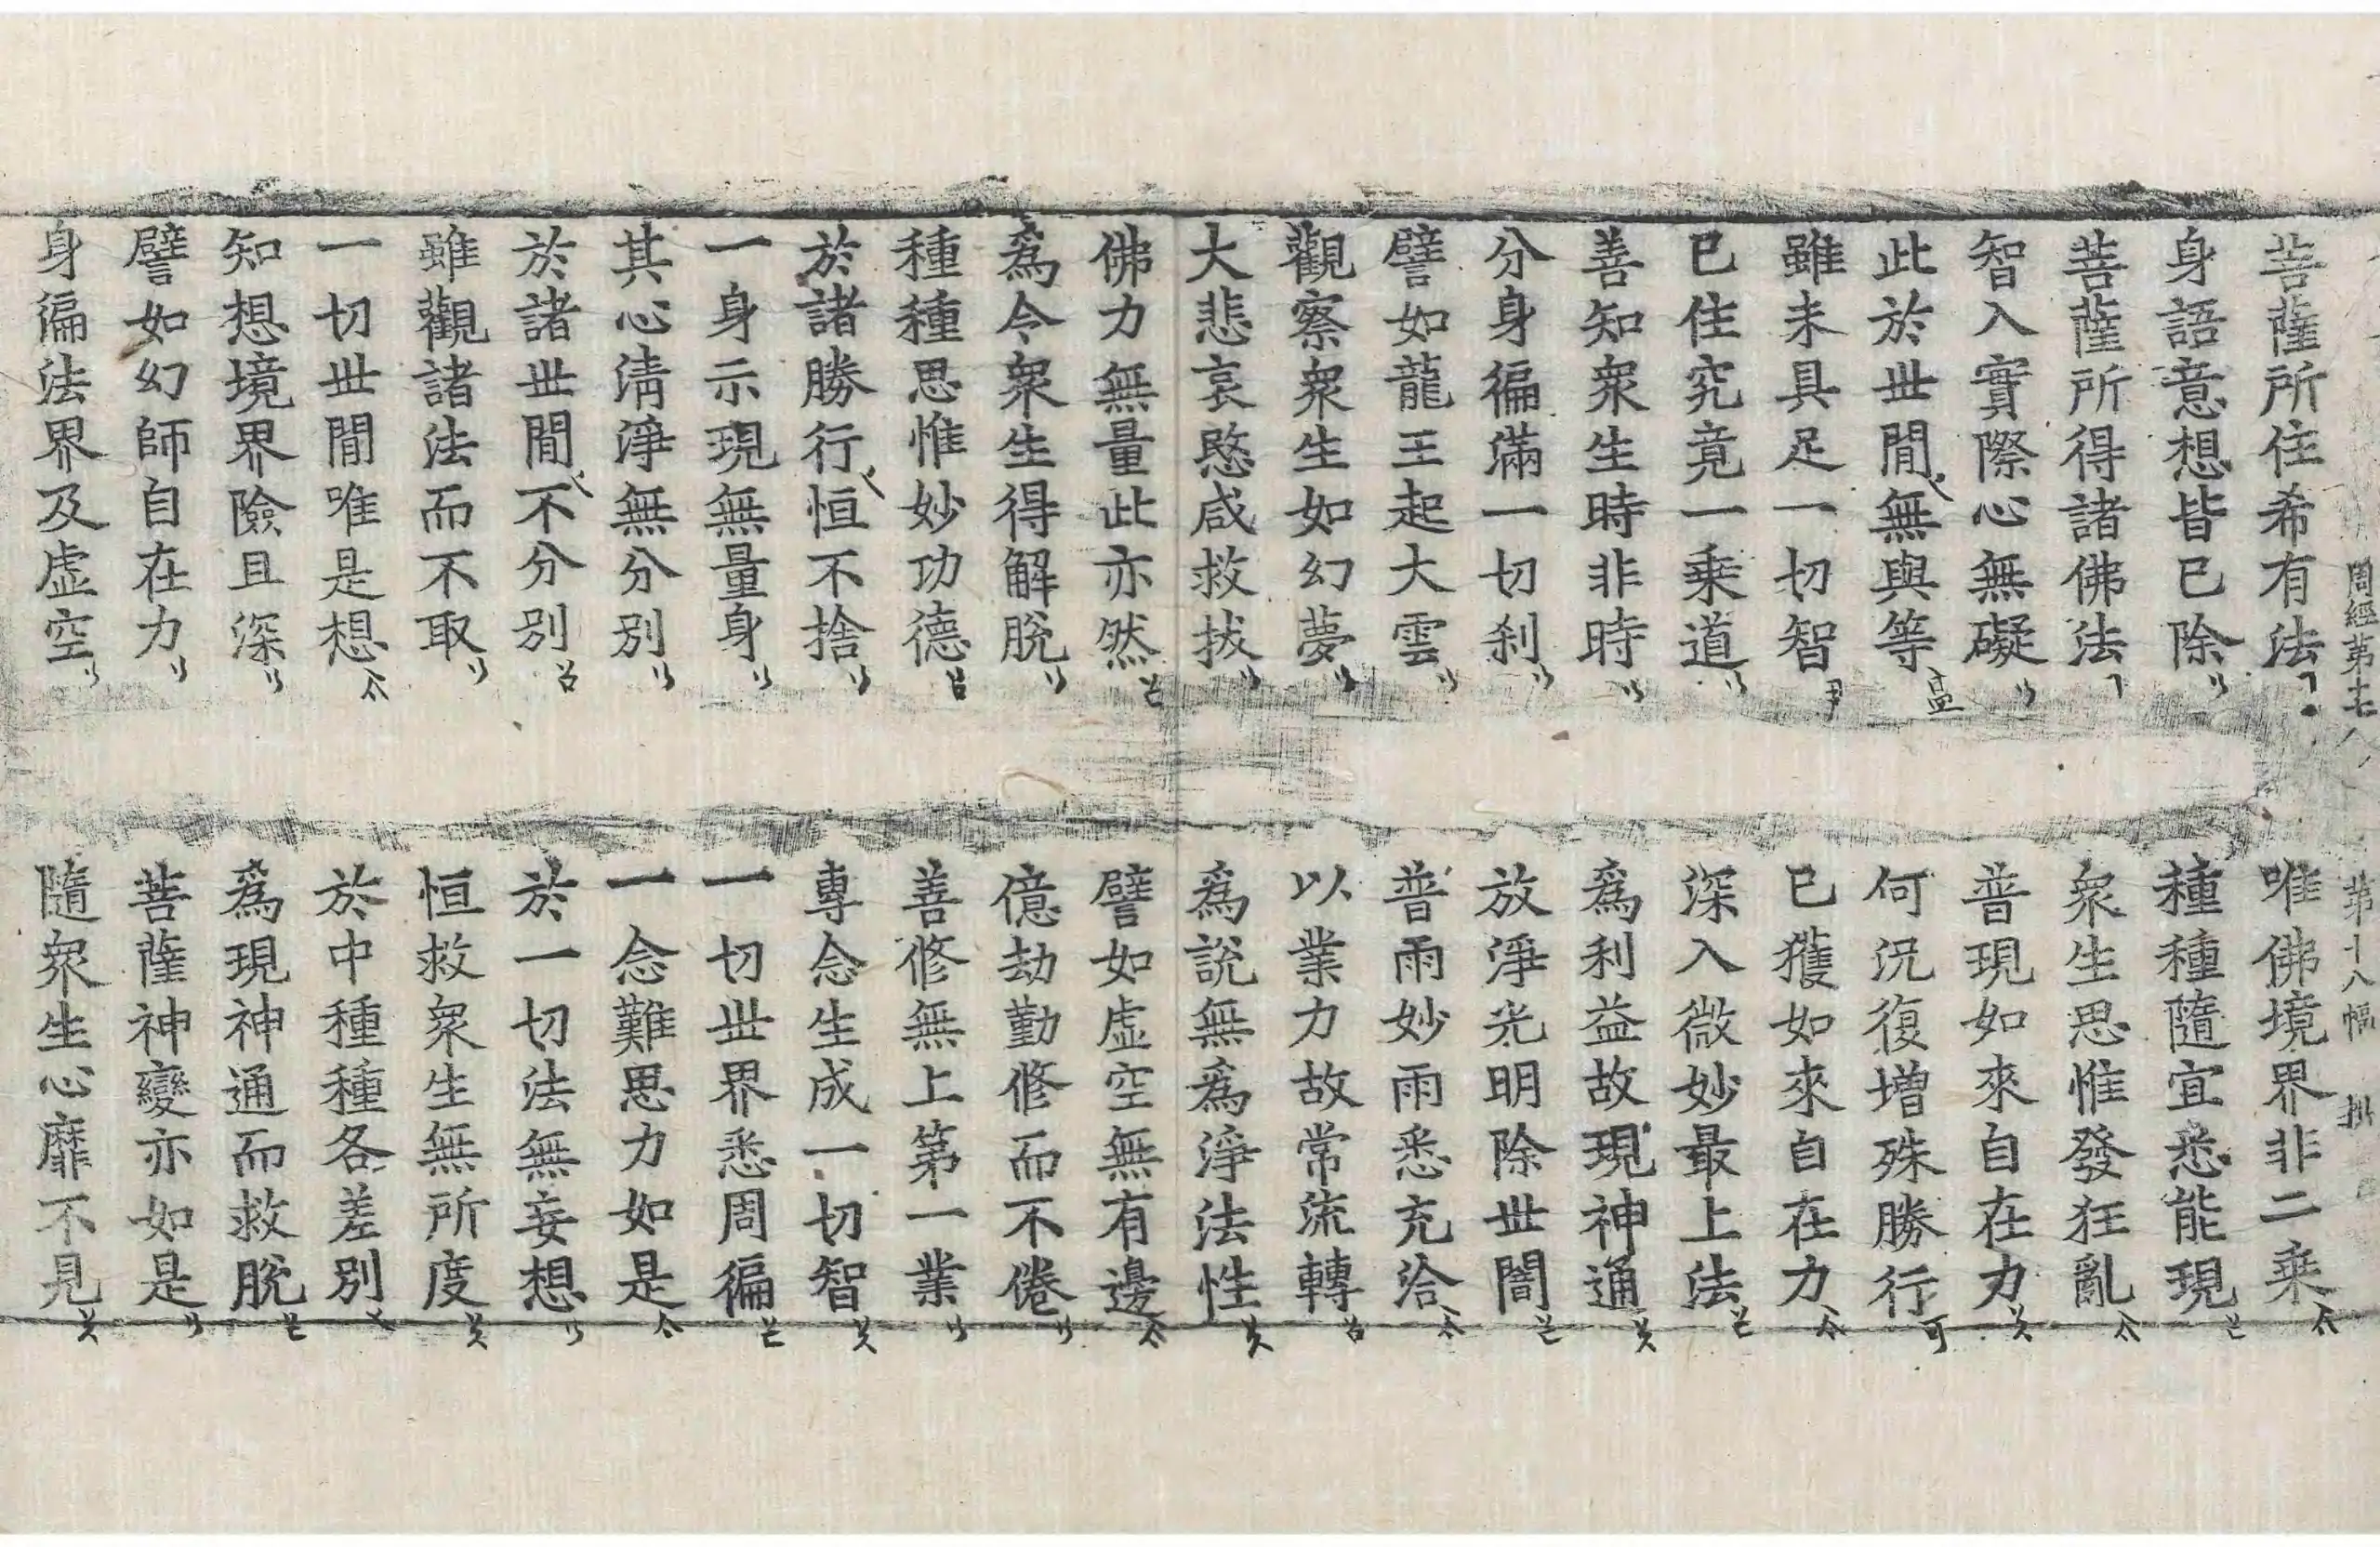 周經第十七 第十八幅
菩薩所住希有法 唯佛境界非二乘
身語意想皆已除 種種隨宜悉能現
菩薩所得諸佛法 衆生思惟發狂亂
智入實際心無礙 普現如來自在力
此於世間無與等 何況復增殊勝行
雖未具足一切智 已獲如來自在力
已住究竟一乘道 深入微妙最上法
善知衆生時非時 爲利益故現神通
分身徧滿一切刹 放淨光明除世闇
譬如龍王起大雲 普雨妙雨悉充洽
觀察衆生如幻夢 以業力故常流轉
大悲哀愍咸救拔 爲說無爲淨法性
佛力無量此亦然 譬如虛空無有邊
爲令衆生得解脫 億劫勤修而不倦
種種思惟妙功德 善修無上第一業
於諸勝行恒不捨 專念生成一切智
一身示現無量身 一切世界悉周徧
其心淸淨無分別 一念難思力如是
於諸世間不分別 於一切法無妄想
雖觀諸法而不取 恒救衆生無所度
一切世間唯是想 於中種種各差別
知想境界險且深 爲現神通而救脫
譬如幻師自在力 菩薩神變亦如是
身徧法界及虛空 隨衆生心靡不見